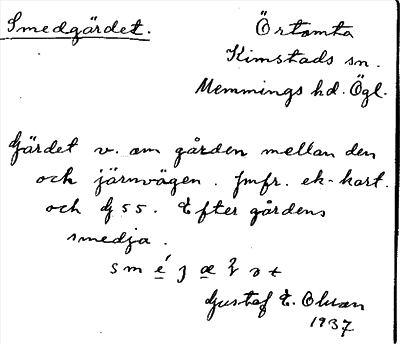 Smedgärdet.
Örtomta
Kimstads sn.
Memmings hd. Ögl.
Gärdet v. om gården mellan den
och järnvägen. Jmfr. ek-kart.
och G 55. Efter gårdens
smedja.
Gustaf E. Olsson
1937